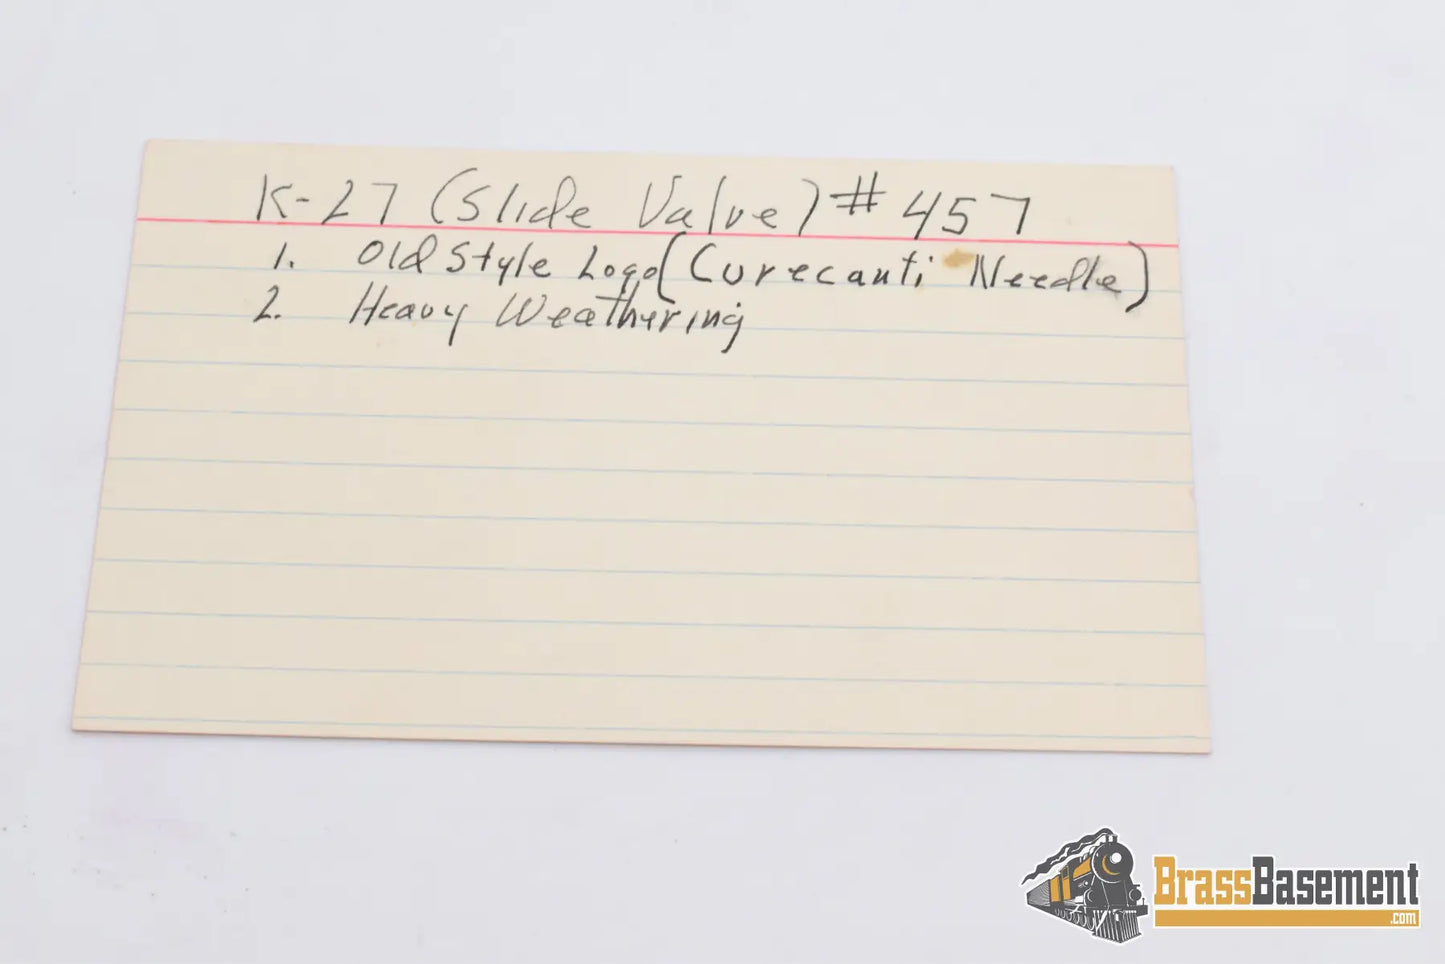 K-27 (Slide Valve) # 457
1. Old Style Logo (Curecanti Needle)
2. Heavy Weathering
BrassBasement
.com